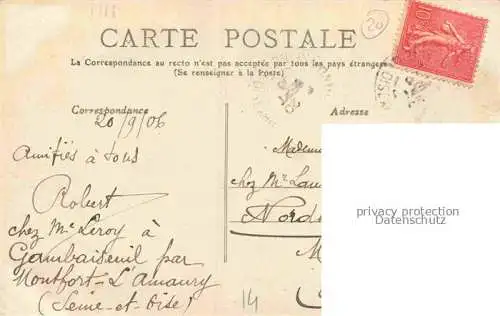 1118
20
CARTE POSTALE
La Correspondance au recto n'est pas acceptée par tous les pays étrangers
(Se renseigner à la Poste)
Correspondance
Adresse
20/9/06
Amitiés à tous
Robert
chez Mr Leroy à
Gambaiseuil par
Montfort-L'Amaury
(Seine-et-Oise)
14
chez Mr
Nord
privacy protection
Datenschutz
10